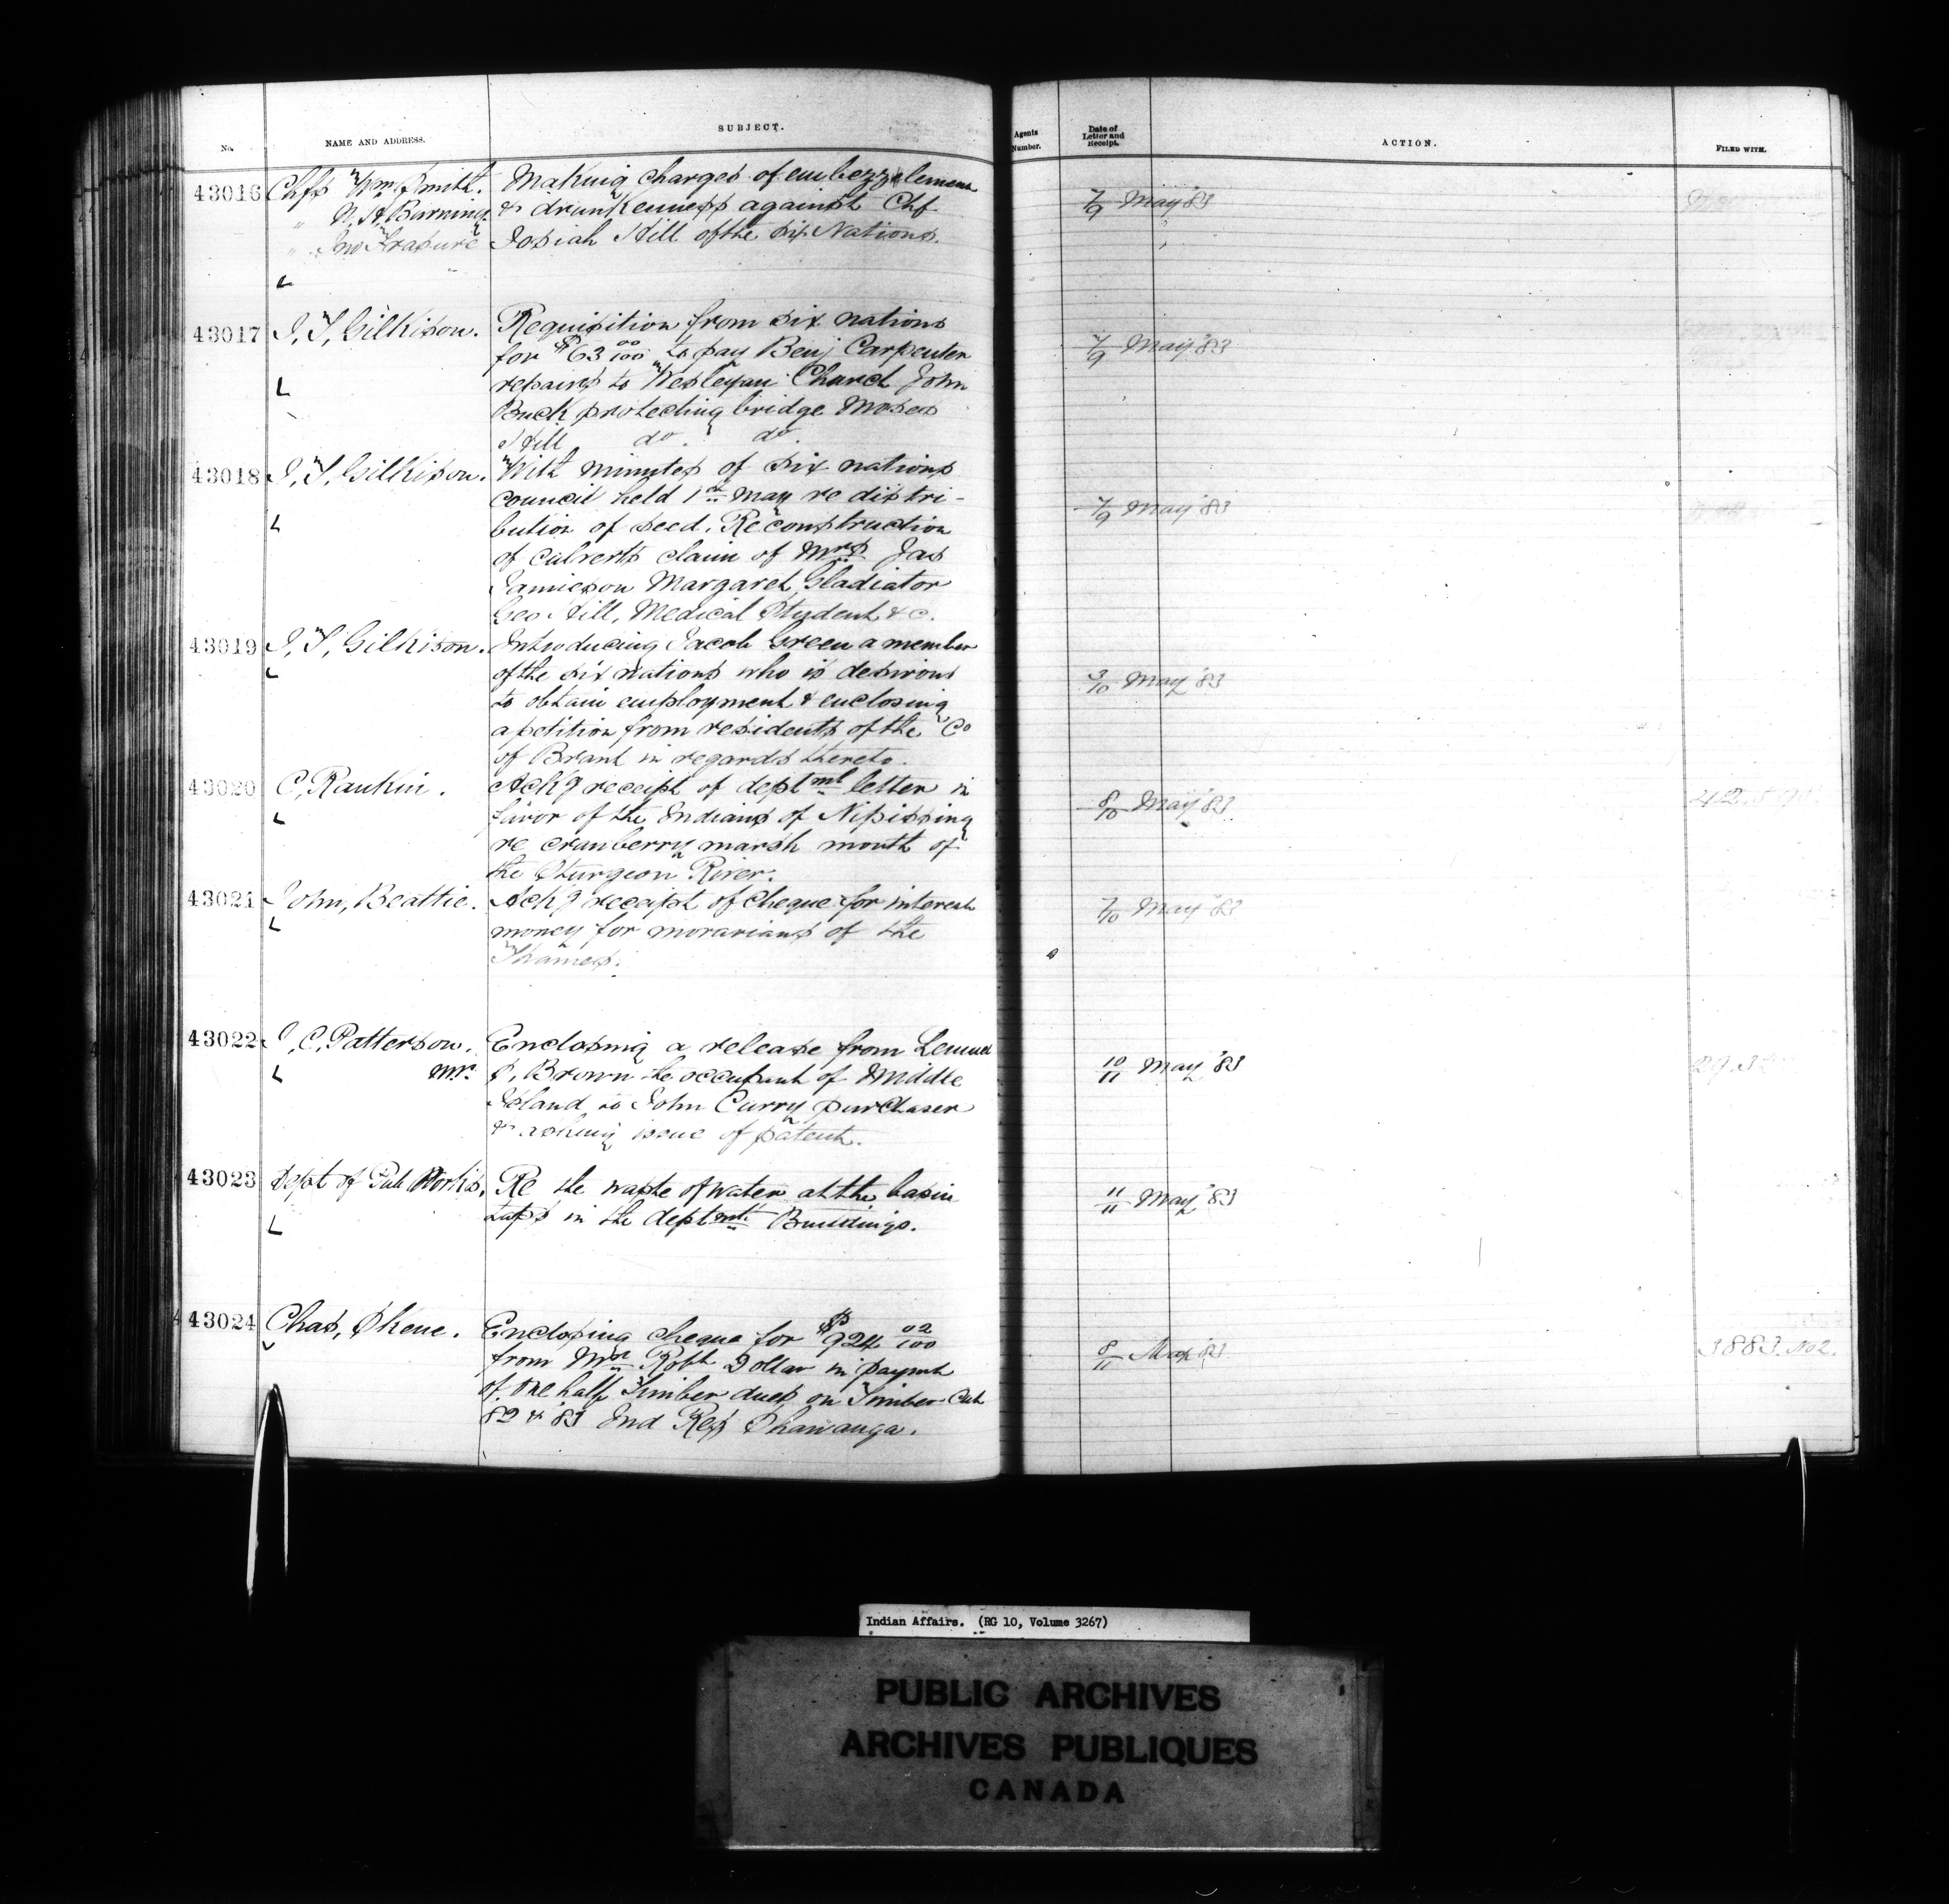 No.
NAME AND ADDRESS.
SUBJECT.
Agents Number.
Date of Letter and Receipt.
ACTION.
FILED WITH.
43016 Chfs Wm Smith. Making charges of embezzlement 7/9 May '83
" N. H. Burning & drunkenness against Chf
" Jno Josiah Hill of the Six Nations.
43017 J, T, Gilkison. Requisition from six nations
for $63 00/100 to pay Benj Carpenter 7/9 May '83
repairs to Wesleyan Church John
Buck protecting bridge Moses
Hill do. do.
43018 J, T, Gilkison. With minutes of six nations
council held 1st May re distri- 7/9 May '83
bution of seed. Reconstruction
of culverts claim of Mrs Jas
Jamieson Margaret Gladiator
Geo Hill, Medical Student &c.
43019 J, T, Gilkison. Introducing Jacob Green a member
of the six nations who is desirous 3/10 May '83
to obtain employment & enclosing
a petition from residents of the Co
of Brant in regards thereto.
43020 C, Rankin. Ackg receipt of deptmt letter in 8/10 May '83
favor of the Indians of Nipissing
re cranberry marsh mouth of
the Sturgeon River.
43021 John, Beattie. Ackg receipt of cheque for interest 7/10 May '83
money for moravians of the
Thames.
43022 J, C, Patterson. Enclosing a release from Lemuel 10/11 May '83
S, Brown the occupant of Middle
Island to John Curry purchaser
& asking issue of patent.
43023 Dept of Pub Works. Re the waste of water at the basin 11/11 May '83
taps in the deptmtl Buildings.
43024 Chas, Skene. Enclosing cheque for $924 02/100
from Mr Robt Dollar in paymt 8/11 May '83 3883. No2.
of one half Timber dues on Timber cut
82 & '83 Ind Res Shawanga.
Indian Affairs. (RG 10, Volume 3267)
PUBLIC ARCHIVES
ARCHIVES PUBLIQUES
CANADA